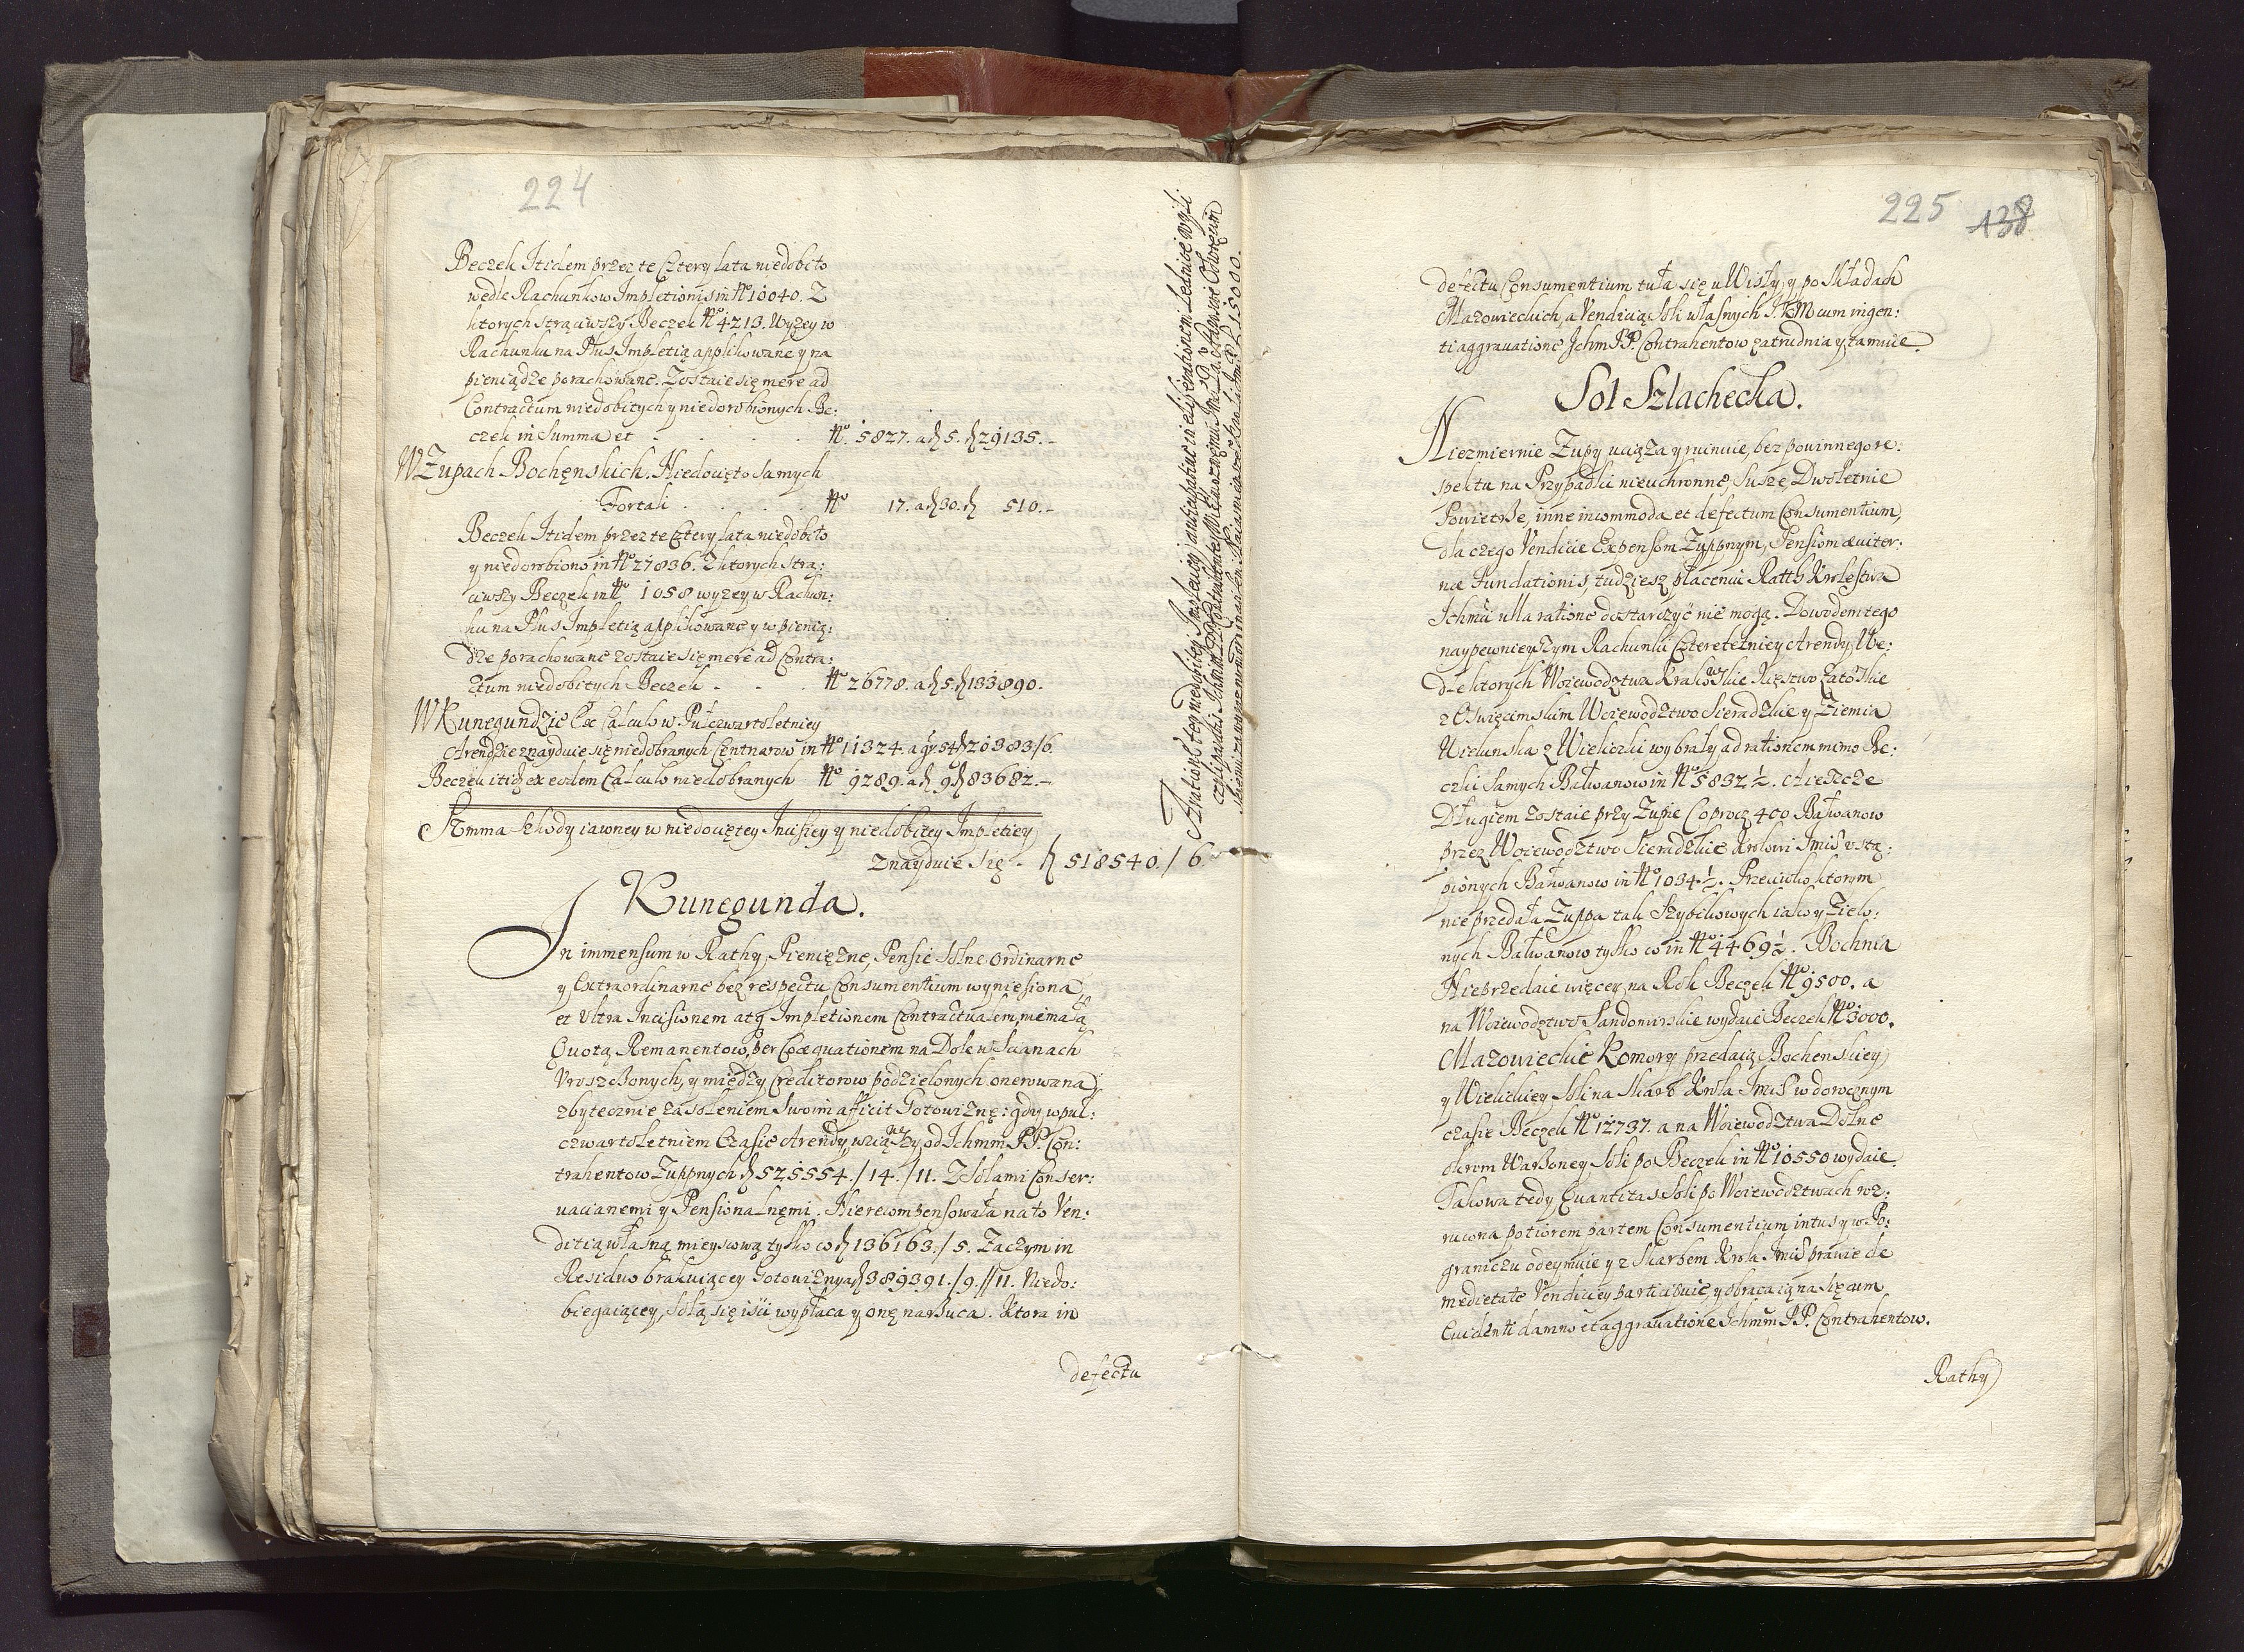 224
Beczek Itidem przez te Cztery lata niedobito
wedle Rachunkow Impletionis in Nº 10040. Z
ktorych strąciwszy Beczek Nº 4213. Wyzey w
Rachunku na Plus Impletią applikowane y na
pieniądze porachowane. Zostaie się mere ad
Contractum niedobitych y niedorobionych Be:
czek in Summa et . . . . . Nº. 5827. a ƶ 5. ƶ 29135.-
W Zupach Bochęnskich. Niedocięto samych
Fortali . . . . . Nº 17. a ƶ 30. ƶ 510.-
Beczek Itidem przez te Cztery lata niedobito
y niedorobiono in Nº 27836. Z ktorych strą:
ciwszy Beczek in Nº 1058 wyzey w Rachun:
ku na Plus Impletią applikowane y w pienią:
dze porachowane zostaie się mere ad Contra:
ctum niedobitych Beczek - . . . Nº 26778. a ƶ 5. ƶ 133890.
W Kunegundzie Ex Calculo w Pułczwartoletniey
Arendzie znayduie się niedobranych Centnarow in Nº 11324. a gr. 54 ƶ 20383/6.
Beczek itid. ex eodem Calculo niedobranych Nº 9289. a ƶ 9 ƶ 83682.-
Summa szkody iawney w niedociętey Incisiey y niedobitey Impletiey
znayduie się - ƶ 518540./6.
Kunegunda.
In immensum w Rathy Pieniężne, Pensie Solne ordinarne
y Extraordinarne bez respectu Consumentium wyniesiona
et Vltra Incisionem atq Impletionem Contractualem, niemałą
Quotą Remanentow, per Coæquationem na Dole w Scianach
Vroszczonych, y między Creditorow podzielonych onerowana,
zbytecznie zasoleniem swoim afficit Gotowiznę: gdy w puł:
czwartoletniem Czasie Arendy, wziąwszy od Ichmm PP. Con:
trahentow Zuppnych ƶ 525554./14./11. Z Solami Conser:
uacianemi y Pensionalnęmi. Nierecompensowała na to Ven:
ditią własną mieyscową tylko co ƶ 136163./5. Zaczym in
Residuo brakuiącey Gotowizny a ƶ 389391./9.//11. Niedo:
biegaiącey, Solą się isci wypłaca y onę narzuca. Ktora in
defectu
225 138
defectu Consumentium tuła się u Wisły, y po Składach
Mazowieckich, a Venditią Soli własnych J.K.M cum ingen:
ti aggrauatione Ichm PP. Contrahentow zatrudnia y tamuie.
Sol Szlachecka.
Niezmiernie Zupy uciąza y ruinuie, bez powinnego re:
spektu na Przypadki nieuchronne, Suszę, Dwoletnie
Powietrze, inne incommoda et defectum Consumentium,
dla czego Venditie Expensom Zuppnym, Pensiom æuiter:
næ Fundationis, tudziesz płaceniu Rath Krolestwa
Ichmci ulla ratione dostarczyć nie mogą. Dowodem tego
naypewnieyszym Rachunki Czteroletniey Arendy, We:
dle ktorych Woiewodztwa Krakowskie Xięstwo Zatorskie
z Oswięcimskim Woiewodztwo Sieradzkie y Ziemia
Wielunska z Wieliczki wybrały ad rationem mimo Be:
czki samych Bałwanow in Nº 5832½. A ieszcze
Długiem zostaie przy Zupie Co procz 400 Bałwanow
przez Woiewodztwo Sieradzkie Krolowi Jmsci vstą:
pionych Bałwanow in Nº 1034.½. Przeciwko ktorym
nie przedała Zuppa tak Szybikowych iako y Zielo:
nych Bałwanow tylko co in Nº 4469½. Bochnia
Nieprzedaie więcey na Rok Beczek Nº 9500. a
na Woiewodztwo Sandomirskie wydaie Beczek Nº 3000.
Mazowieckie Komory przedaią Bochenskiey
y Wielickiey Soli na Skarb Krola Jmsci w dorocznym
czasie Beczek Nº 12737. a na Woiewodztwa Dolne
okrom Warzoney Soli po Beczek in Nº 10550 wydaie.
Takowa tedy Quantitas Soli po Woiewodztwach roz:
rucona potiorem partem Consumentium intus y w Po:
graniczu odeymuie y z Skarbem Krola Jmsci prawie de
medietate Venditiey participuie, y obraca ią na się cum
Euidenti damno et aggrauatione Ichmm PP. Contrahentow.
Rathy